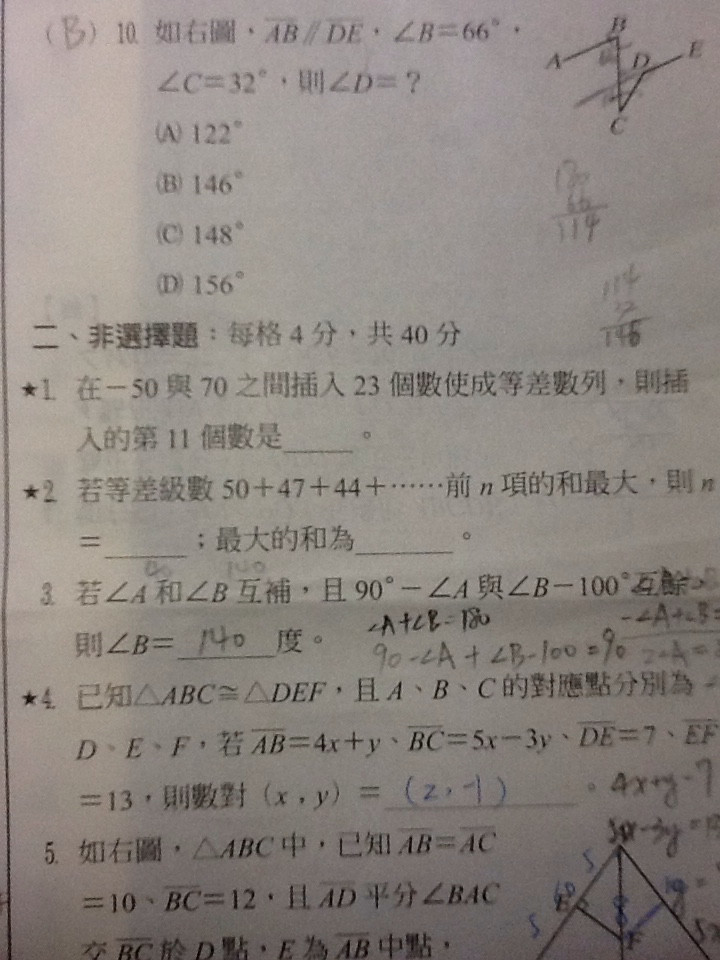 (B) 10. 如右圖，AB // DE，∠B=66°，
∠C=32°，則∠D=？
(A) 122°
(B) 146°
(C) 148°
(D) 156°
A
B
D
E
C
114
114
146
二、非選擇題：每格 4 分，共 40 分
★1. 在－50 與 70 之間插入 23 個數使成等差數列，則插
入的第 11 個數是_____。
★2. 若等差級數 50＋47＋44＋……前 n 項的和最大，則 n
＝______；最大的和為_______。
140
3. 若∠A 和∠B 互補，且 90°－∠A 與∠B－100°互餘，
則∠B＝ 140 度。
∠A+∠B=180
90-∠A+∠B-100=90
★4. 已知△ABC≅△DEF，且 A、B、C 的對應點分別為
D、E、F，若 AB＝4x＋y、BC＝5x－3y、DE＝7、EF
＝13，則數對（x，y）＝ (2,-1) 。
4x+y=7
5. 如右圖，△ABC 中，已知 AB＝AC
＝10、BC＝12，且 AD 平分∠BAC
交 BC 於 D 點，E 為 AB 中點，
5
5
E
F